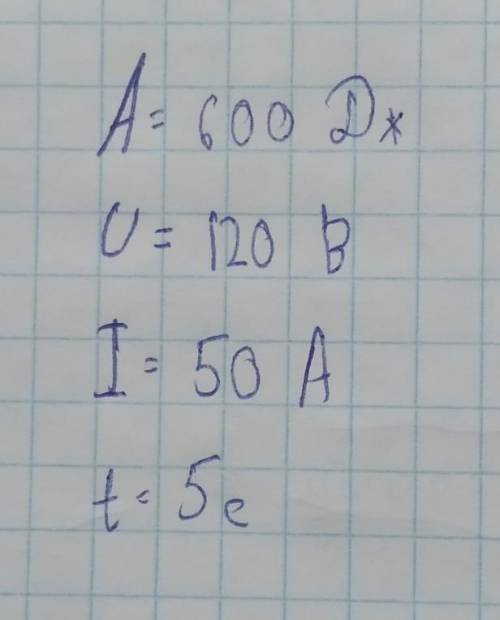 A = 600 Дж
U = 120 В
I = 50 А
t = 5 с